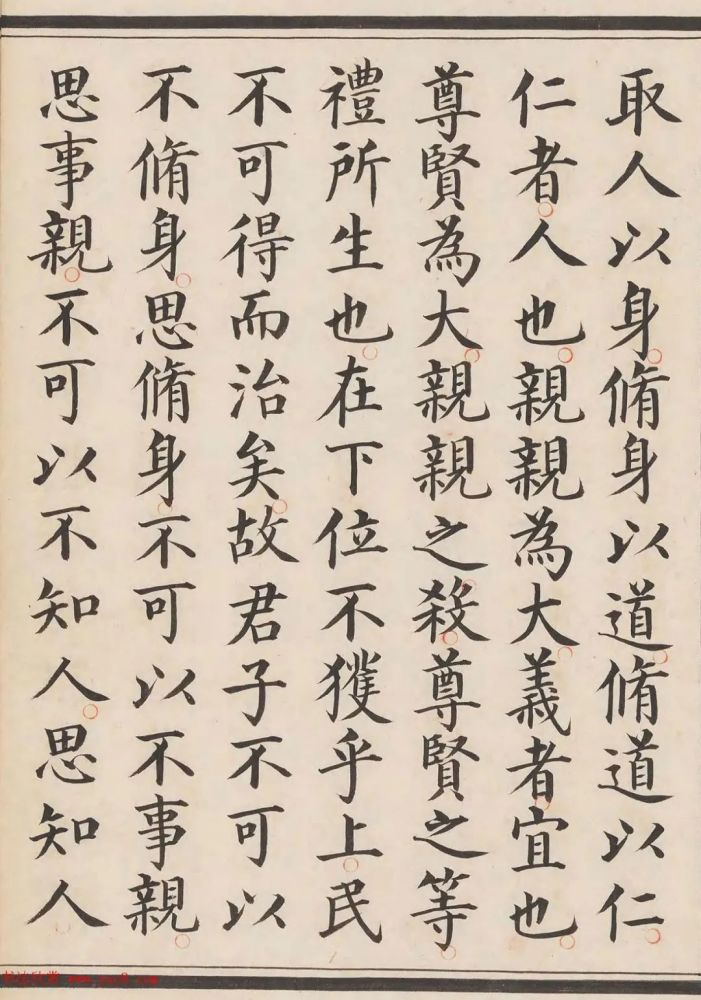 取人以身脩身以道脩道以仁
仁者人也親親為大義者宜也
尊賢為大親親之殺尊賢之等
禮所生也在下位不獲乎上民
不可得而治矣故君子不可以
不脩身思脩身不可以不事親
思事親不可以不知人思知人